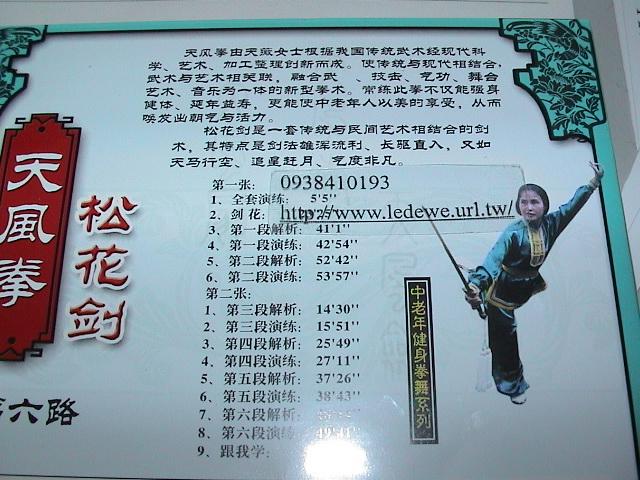 天风拳由天薇女士根据我国传统武术经现代科
学、艺术、加工整理创新而成。使传统与现代相结合,
武术与艺术相关联，融合武　、技击、气功、舞台
艺术、音乐为一体的新型拳术。常练此拳不仅能强身
健体、延年益寿，更能使中老年人以美的享受，从而
唤发出朝气与活力。
松花剑是一套传统与民间艺术相结合的剑
术，其特点是剑法雄浑流利、长驱直入，又如
天马行空、追星赶月、气度非凡。
天風拳
松花剑
第六路
第一张:
1、全套演练: 5'5"
2、剑 花:
3、第一段解析: 41'1"
4、第一段演练: 42'54"
5、第二段解析: 52'42"
6、第二段演练: 53'57"
第二张:
1、第三段解析: 14'30"
2、第三段演练: 15'51"
3、第四段解析: 25'49"
4、第四段演练: 27'11"
5、第五段解析: 37'26"
6、第五段演练: 38'43"
7、第六段解析:
8、第六段演练:
9、跟我学:
0938410193
http://www.ledewe.url.tw/
中老年健身拳舞系列